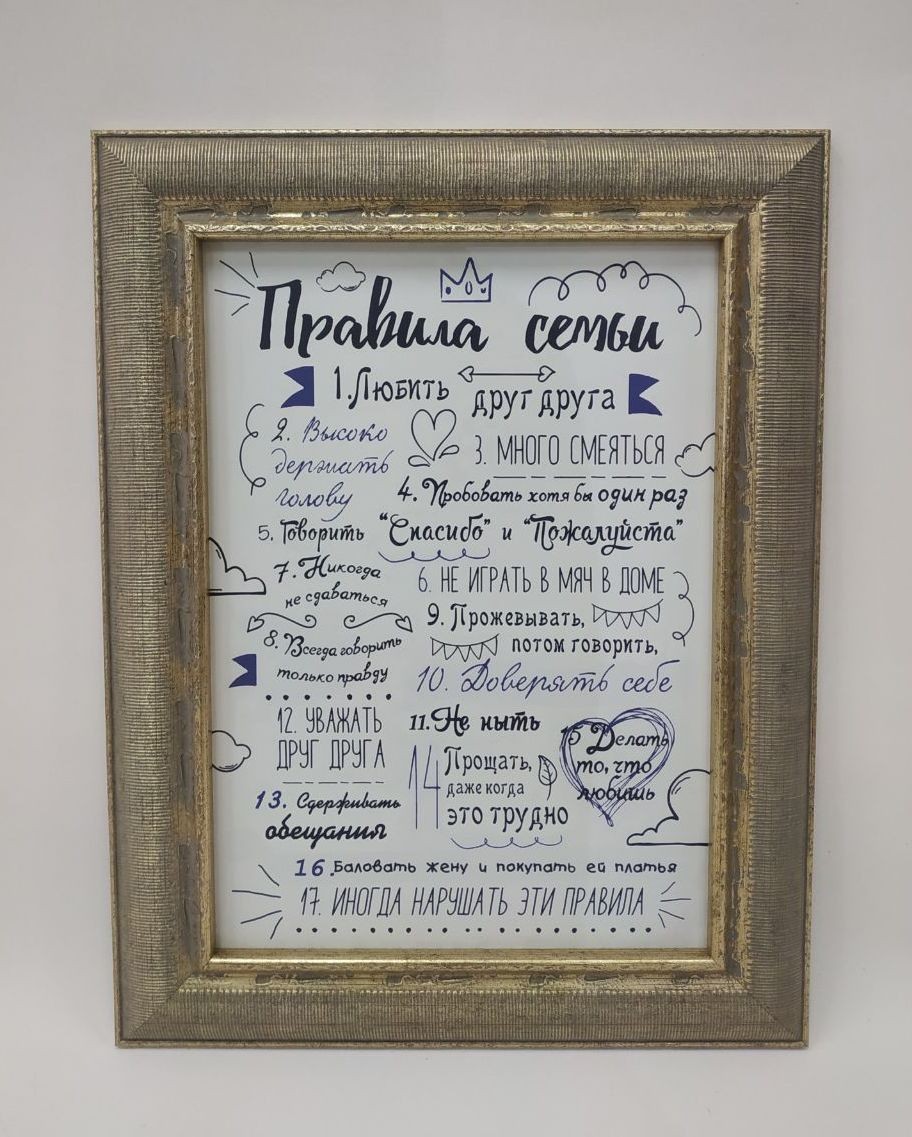 Правила семьи
1. Любить друг друга
2. Высоко
держать
голову
3. МНОГО СМЕЯТЬСЯ
4. Пробовать хотя бы один раз
5. Говорить "Спасибо" и "Пожалуйста"
7. Никогда
не сдаваться
6. НЕ ИГРАТЬ В МЯЧ В ДОМЕ
8. Всегда говорить
только правду
9. Прожевывать,
потом говорить,
10. Доверять себе
12. УВАЖАТЬ
ДРУГ ДРУГА
11. Не ныть
13. Сдерживать
обещания
14 Прощать,
даже когда
это трудно
15 Делать
то, что
любишь
16. Баловать жену и покупать ей платья
17. ИНОГДА НАРУШАТЬ ЭТИ ПРАВИЛА